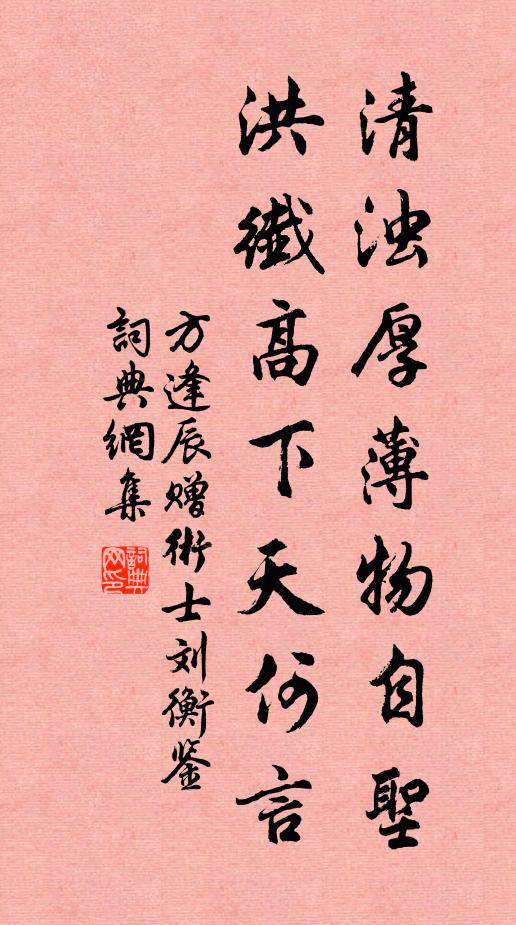 清浊厚薄物自聖
洪纖高下天何言
方逢辰赠術士刘衡鉴
詞典網集
詞典网印